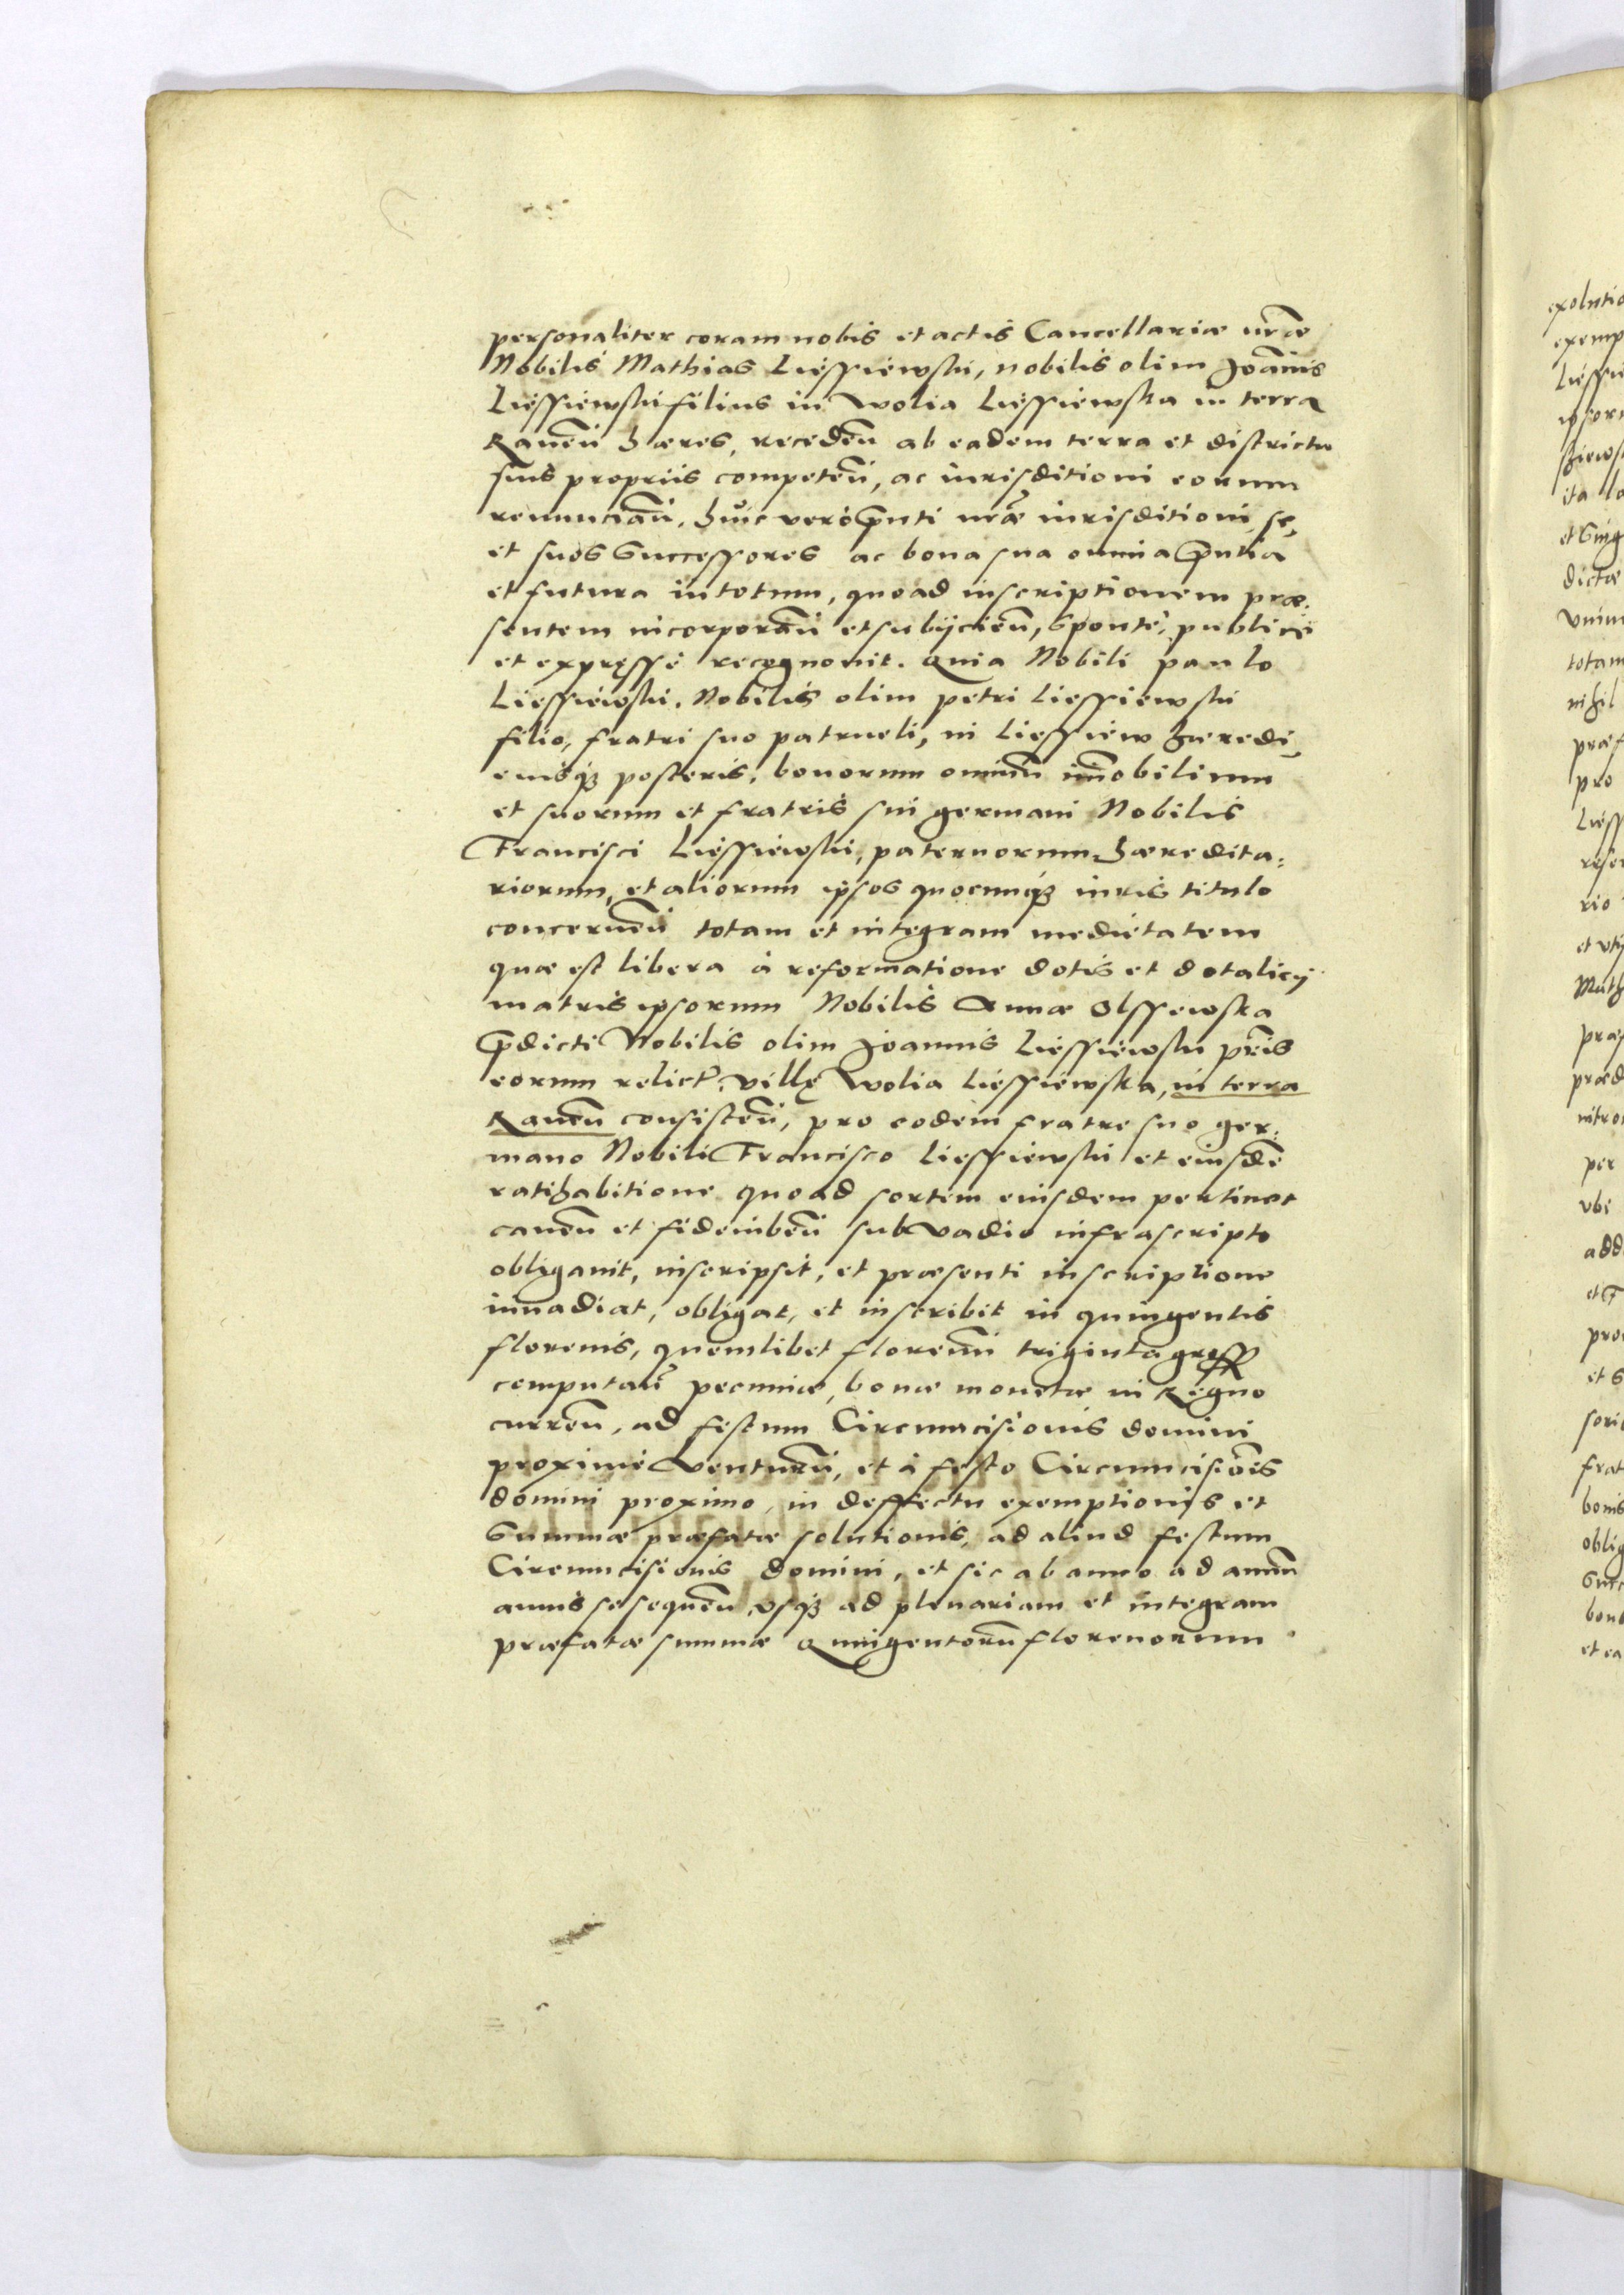 personaliter coram nobis et actis Cancellariæ nr̃æ
Nobilis Mathias Liessiewski, nobilis olim Joãnnis
Liessiewski filius in Wolia Liessiewska in terra
Raueñ hæres, recedeñ ab eadem terra et districtu
suis propriis competeñ, ac iurisditioni eorum
renunciañ. huic vero p̃nti nr̃æ iurisditioni se,
et suos Successores ac bona sua omnia p̃ntia
et futura in totum, quoad inscriptionem præ:
sentem incorporañ et subijcieñ, sponte, publice
et expręsse recognouit. Quia Nobili paulo
Liessiewski, Nobilis olim petri Liessiewski
filio, fratri suo patrueli, in Liessiew hæredi,
eiusq3 posteris, bonorum omniũ im̃obilium
et suorum et fratris sui germani Nobilis
Francisci Liessiewski, paternorum hæredita:
riorum, et aliorum ipsos quocunq3 iuris titulo
concerneñ totam et integram medietatem
quæ est libera à reformatione dotis et dotalicij
matris ipsorum Nobilis Annæ Olssewska
p̃dicti Nobilis olim Joannis Liessiewski pr̃is
eorum relict. villę Wolia Liessiewska, in terra
Raueñ consisteñ, pro eodem fratre suo ger:
mano Nobili Francisco Liessiewski et eiusdẽ
ratihabitione quoad sortem eiusdem pertinet
caueñ et fideiubeñ sub vadio infrascripto
obligauit, inscripsit, et præsenti inscriptione
inuadiat, obligat, et inscribit in quingentis
florenis, quemlibet florenũ triginta gross
computañ pecuniæ, bonæ monetæ in Regno
curreñ, ad festum Circumcisionis domini
proxime venturũ, et à festo Circumcisiõis
domini proximo, in deffectu exemptionis et
Summæ præfatæ solutionis, ad aliud festum
Circumcisionis domini, et sic ab anno ad annũ
annis se sequeñ, vsq3 ad plenariam et integram
præfatæ summæ Quingentorũ florenorum